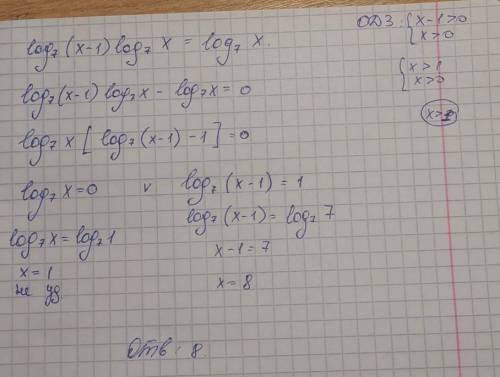 log₇ (x-1) log₇ x = log₇ x.
ОДЗ: { x-1>0
x>0
{ x>1
x>0
x>1
log₇ (x-1) log₇ x - log₇ x = 0
log₇ x [ log₇ (x-1) - 1 ] = 0
log₇ x = 0 v log₇ (x-1) = 1
log₇ (x-1) = log₇ 7
log₇ x = log₇ 1
x-1 = 7
x = 1
не уд.
x = 8
Отв: 8.